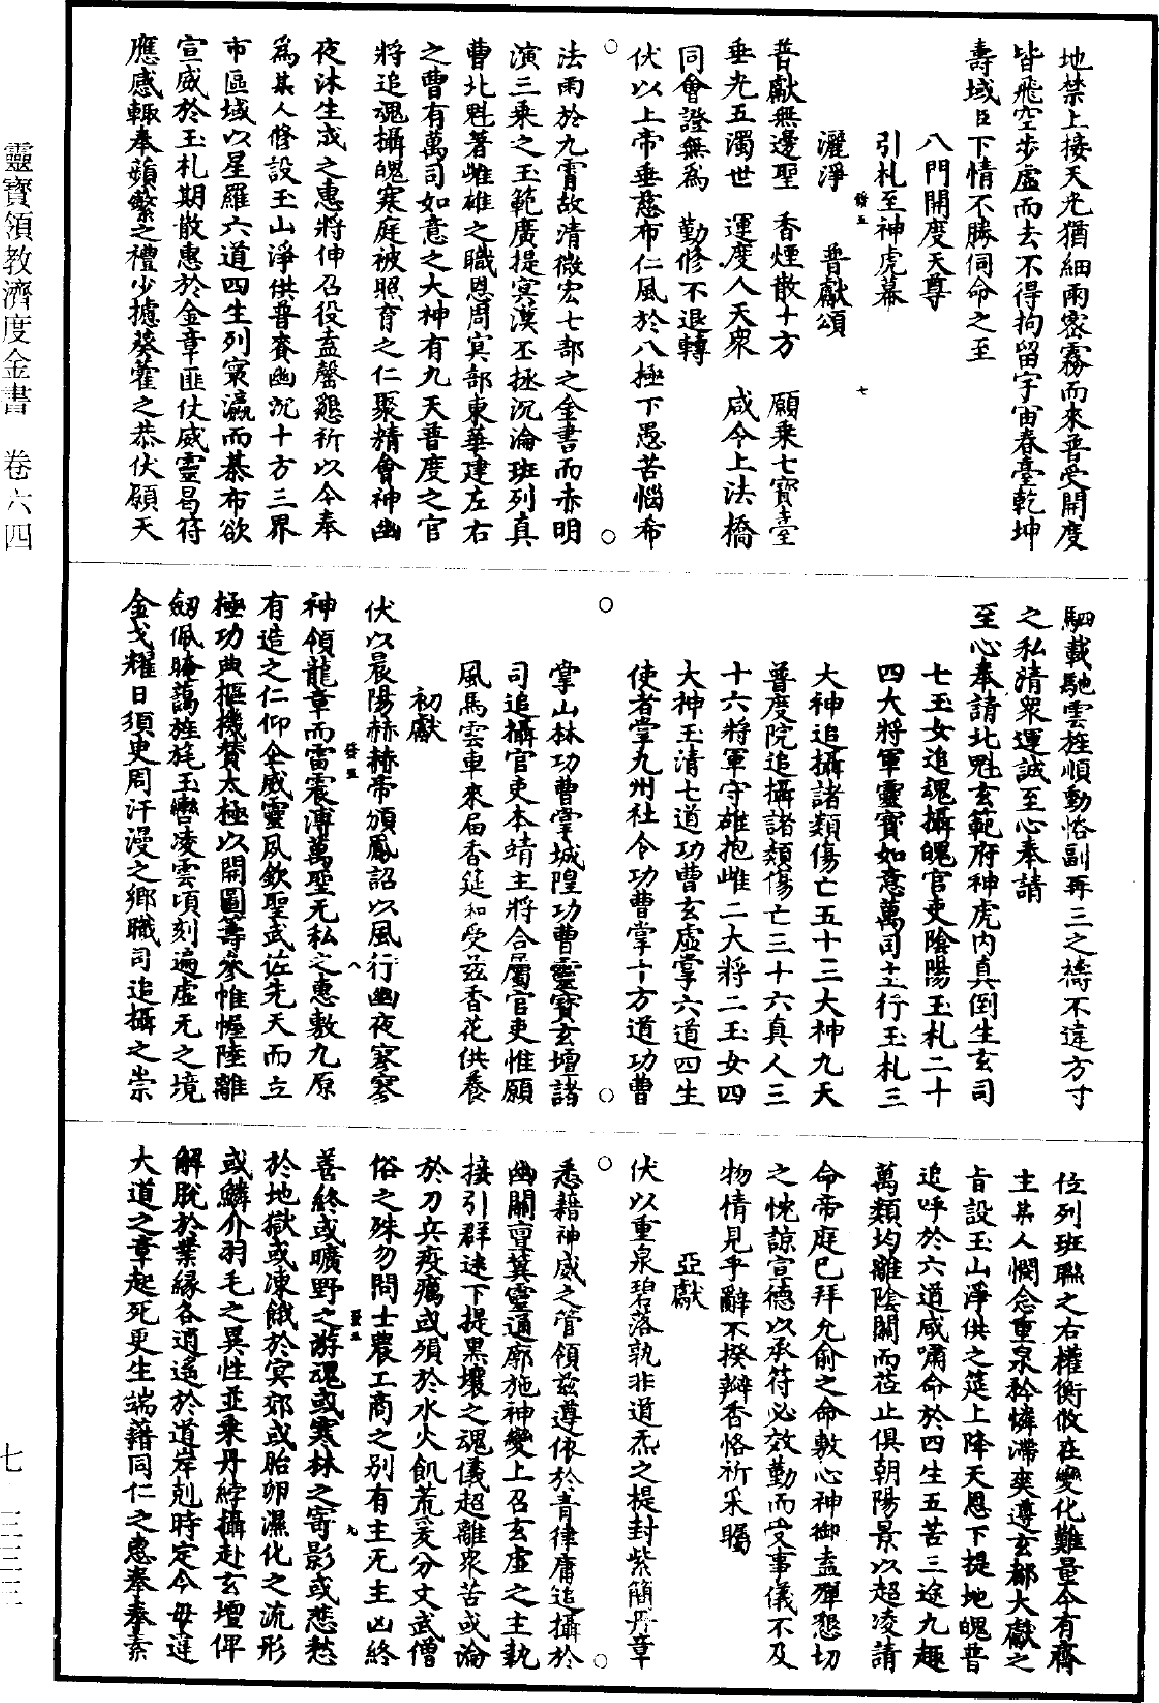 地禁上接天光猶細雨密霧而來普受開度
皆飛空步虛而去不得拘留宇宙春臺乾坤
壽域臣下情不勝伺命之至
八門開度天尊
引札至神虎幕
灑淨　普獻頌
普獻無邊聖　香煙散十方　願乘七寶臺
垂光五濁世　運度人天衆　咸令上法橋
同會證無爲　勤修不退轉
伏以上帝垂慈布仁風於八極下愚苦惱希
法雨於九霄故清微宏七部之金書而赤明
演三乘之玉範廣提冥漠丕拯沉淪班列真
曹北魁著雌雄之職恩周冥部東華建左右
之曹有萬司如意之大神有九天普度之官
將追魂攝魄寒庭被照育之仁聚精會神幽
夜沐生成之惠將伸召役盍罄懇祈以今奉
爲某人修設玉山淨供普賚幽沉十方三界
市區域以星羅六道四生列寰瀛而棊布欲
宣威於玉札期散惠於金章匪仗威靈曷符
應感輒奉蘋蘩之禮少攄葵藿之恭伏願天
駟載馳雲旌順動恪副再三之禱不違方寸
之私清衆運誠至心奉請
至心奉請北魁玄範府神虎內真倒生玄司
七玉女追魂攝魄官吏陰陽玉札二十
四大將軍靈寶如意萬司土行玉札三
大神追攝諸類傷亡五十三大神九天
普度院追攝諸類傷亡三十六真人三
十六將軍守雄抱雌二大將二玉女四
大神玉清七道功曹玄虛掌六道四生
使者掌九州社令功曹掌十方道功曹
掌山林功曹掌城隍功曹靈寶玄壇諸
司追攝官吏本靖主將合屬官吏惟願
風馬雲車來屆香筵和受茲香花供養
初獻
伏以晨陽赫赫帝頒鳳詔以風行幽夜寥寥
神領龍章而雷震溥萬聖无私之惠敷九原
有造之仁仰仝威靈夙欽聖武佐先天而立
極功典樞機贊太極以開圖籌參帷幄陸離
劔佩晻藹旌旄玉轡凌雲頃刻遍虛无之境
金戈耀日須臾周汗漫之鄉職司追攝之崇
位列班聯之右權衡攸在變化難量今有齋
主某人憫念重泉矜憐滯爽遵玄都大獻之
旨設玉山淨供之筵上降天恩下提地魄普
追呼於六道咸嘯命於四生五苦三途九趣
萬類均離陰關而莅止俱朝陽景以超凌請
命帝庭已拜允俞之命敷心神御盍殫懇切
之忱諒宣德以承符必效勤而受事儀不及
物情見乎辭不揆瓣香恪祈采矚
亞獻
伏以重泉碧落孰非道炁之提封紫簡丹章
悉藉神威之管領茲遵依於青律庸追攝於
幽關亶冀靈通廓施神變上召玄虛之主執
接引群迷下提黑壤之魂儀超離衆苦或淪
於刀兵疫癘或殞於水火飢荒爰分文武僧
俗之殊勿問士農工商之别有主无主凶終
善終或曠野之游魂或寒林之寄影或愁愁
於地獄或凍餓於冥郊或胎卵濕化之流形
或鱗介羽毛之異性並乘丹綍攝赴玄壇俾
解脫於業緣各逍遙於道岸剋時定今毋違
大道之章起死更生端藉同仁之惠奉奉素
靈寶領教濟度金書　卷六四
七・三三三